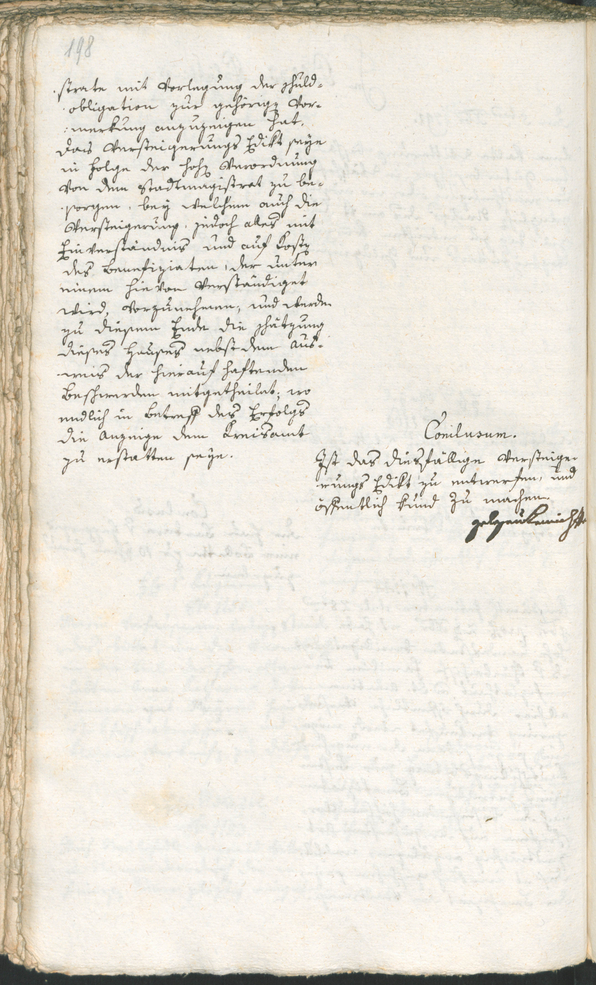 198
strate mit Vorlegung der Schuld-
obligation zur gehörige Vor-
merkung anzuzeigen hat.
Das Versteigerungs Edikt seye
in Folge der hohe Verordnung
von dem Stadtmagistrat zu be-
sorgen, bey welchem auch die
Versteigerung, jedoch alles mit
Einverständnis und auf Koste
des Benefiziaten, der unter
einem hievon verständiget
wird, vorzunehmen, und werde
zu diesem Ende die Schätzung
dieses Hauses nebst dem Aus-
weis der hierauf haftenden
Beschwerden mitgetheilet, wo
endlich in Betreff des Erfolgs
die Anzeige dem Kreisamt
zu erstatten seye.
Conclusum.
Ist das diesfällige Versteige-
rungs Edikt zu entwerfen, und
öffentlich kund zu machen.